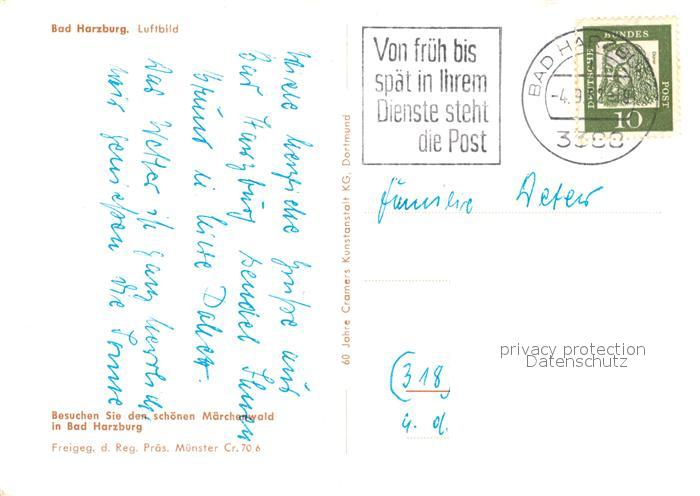 Bad Harzburg. Luftbild
Viele herzliche Grüße aus
Bad Harzburg sendet Ihnen
u. Daheim.
Das Wetter ist ganz herrlich
wir genießen die Sonne
60 Jahre Cramers Kunstanstalt KG, Dortmund
Von früh bis
spät in Ihrem
Dienste steht
die Post
BAD HARZBURG
-4.9.
3388
DEUTSCHE BUNDESPOST
10
Familie
(318)
privacy protection
Datenschutz
Besuchen Sie den schönen Märchenwald
in Bad Harzburg
Freigeg. d. Reg. Präs. Münster Cr. 70 6